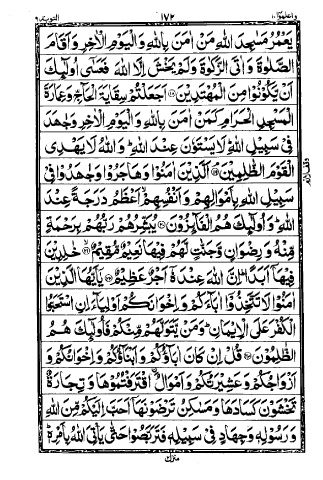 واعلموا ١٠ ١٧٢ التوبة ٩
يَعْمُرُ مَسٰجِدَ اللّٰهِ مَنْ اٰمَنَ بِاللّٰهِ وَالْيَوْمِ الْاٰخِرِ وَاَقَامَ
الصَّلٰوةَ وَاٰتَى الزَّكٰوةَ وَلَمْ يَخْشَ اِلَّا اللّٰهَ فَعَسٰٓى اُولٰٓئِكَ
اَنْ يَّكُوْنُوْا مِنَ الْمُهْتَدِيْنَ ۝١٨ اَجَعَلْتُمْ سِقَايَةَ الْحَآجِّ وَعِمَارَةَ
الْمَسْجِدِ الْحَرَامِ كَمَنْ اٰمَنَ بِاللّٰهِ وَالْيَوْمِ الْاٰخِرِ وَجٰهَدَ
فِيْ سَبِيْلِ اللّٰهِ لَا يَسْتَوٗنَ عِنْدَ اللّٰهِ وَاللّٰهُ لَا يَهْدِى
الْقَوْمَ الظّٰلِمِيْنَ ۝١٩ اَلَّذِيْنَ اٰمَنُوْا وَهَاجَرُوْا وَجٰهَدُوْا فِيْ
سَبِيْلِ اللّٰهِ بِاَمْوَالِهِمْ وَاَنْفُسِهِمْ اَعْظَمُ دَرَجَةً عِنْدَ
اللّٰهِ وَاُولٰٓئِكَ هُمُ الْفَآئِزُوْنَ ۝٢٠ يُبَشِّرُهُمْ رَبُّهُمْ بِرَحْمَةٍ
مِّنْهُ وَرِضْوَانٍ وَّجَنّٰتٍ لَّهُمْ فِيْهَا نَعِيْمٌ مُّقِيْمٌ ۝٢١ خٰلِدِيْنَ
فِيْهَآ اَبَدًا اِنَّ اللّٰهَ عِنْدَهٗٓ اَجْرٌ عَظِيْمٌ ۝٢٢ يٰٓاَيُّهَا الَّذِيْنَ
اٰمَنُوْا لَا تَتَّخِذُوْٓا اٰبَآءَكُمْ وَاِخْوَانَكُمْ اَوْلِيَآءَ اِنِ اسْتَحَبُّوا
الْكُفْرَ عَلَى الْاِيْمَانِ وَمَنْ يَّتَوَلَّهُمْ مِّنْكُمْ فَاُولٰٓئِكَ هُمُ
الظّٰلِمُوْنَ ۝٢٣ قُلْ اِنْ كَانَ اٰبَآؤُكُمْ وَاَبْنَآؤُكُمْ وَاِخْوَانُكُمْ وَ
اَزْوَاجُكُمْ وَعَشِيْرَتُكُمْ وَاَمْوَالُ اقْتَرَفْتُمُوْهَا وَتِجَارَةٌ
تَخْشَوْنَ كَسَادَهَا وَمَسٰكِنُ تَرْضَوْنَهَآ اَحَبَّ اِلَيْكُمْ مِّنَ اللّٰهِ
وَرَسُوْلِهٖ وَجِهَادٍ فِيْ سَبِيْلِهٖ فَتَرَبَّصُوْا حَتّٰى يَاْتِيَ اللّٰهُ بِاَمْرِهٖ
منزل